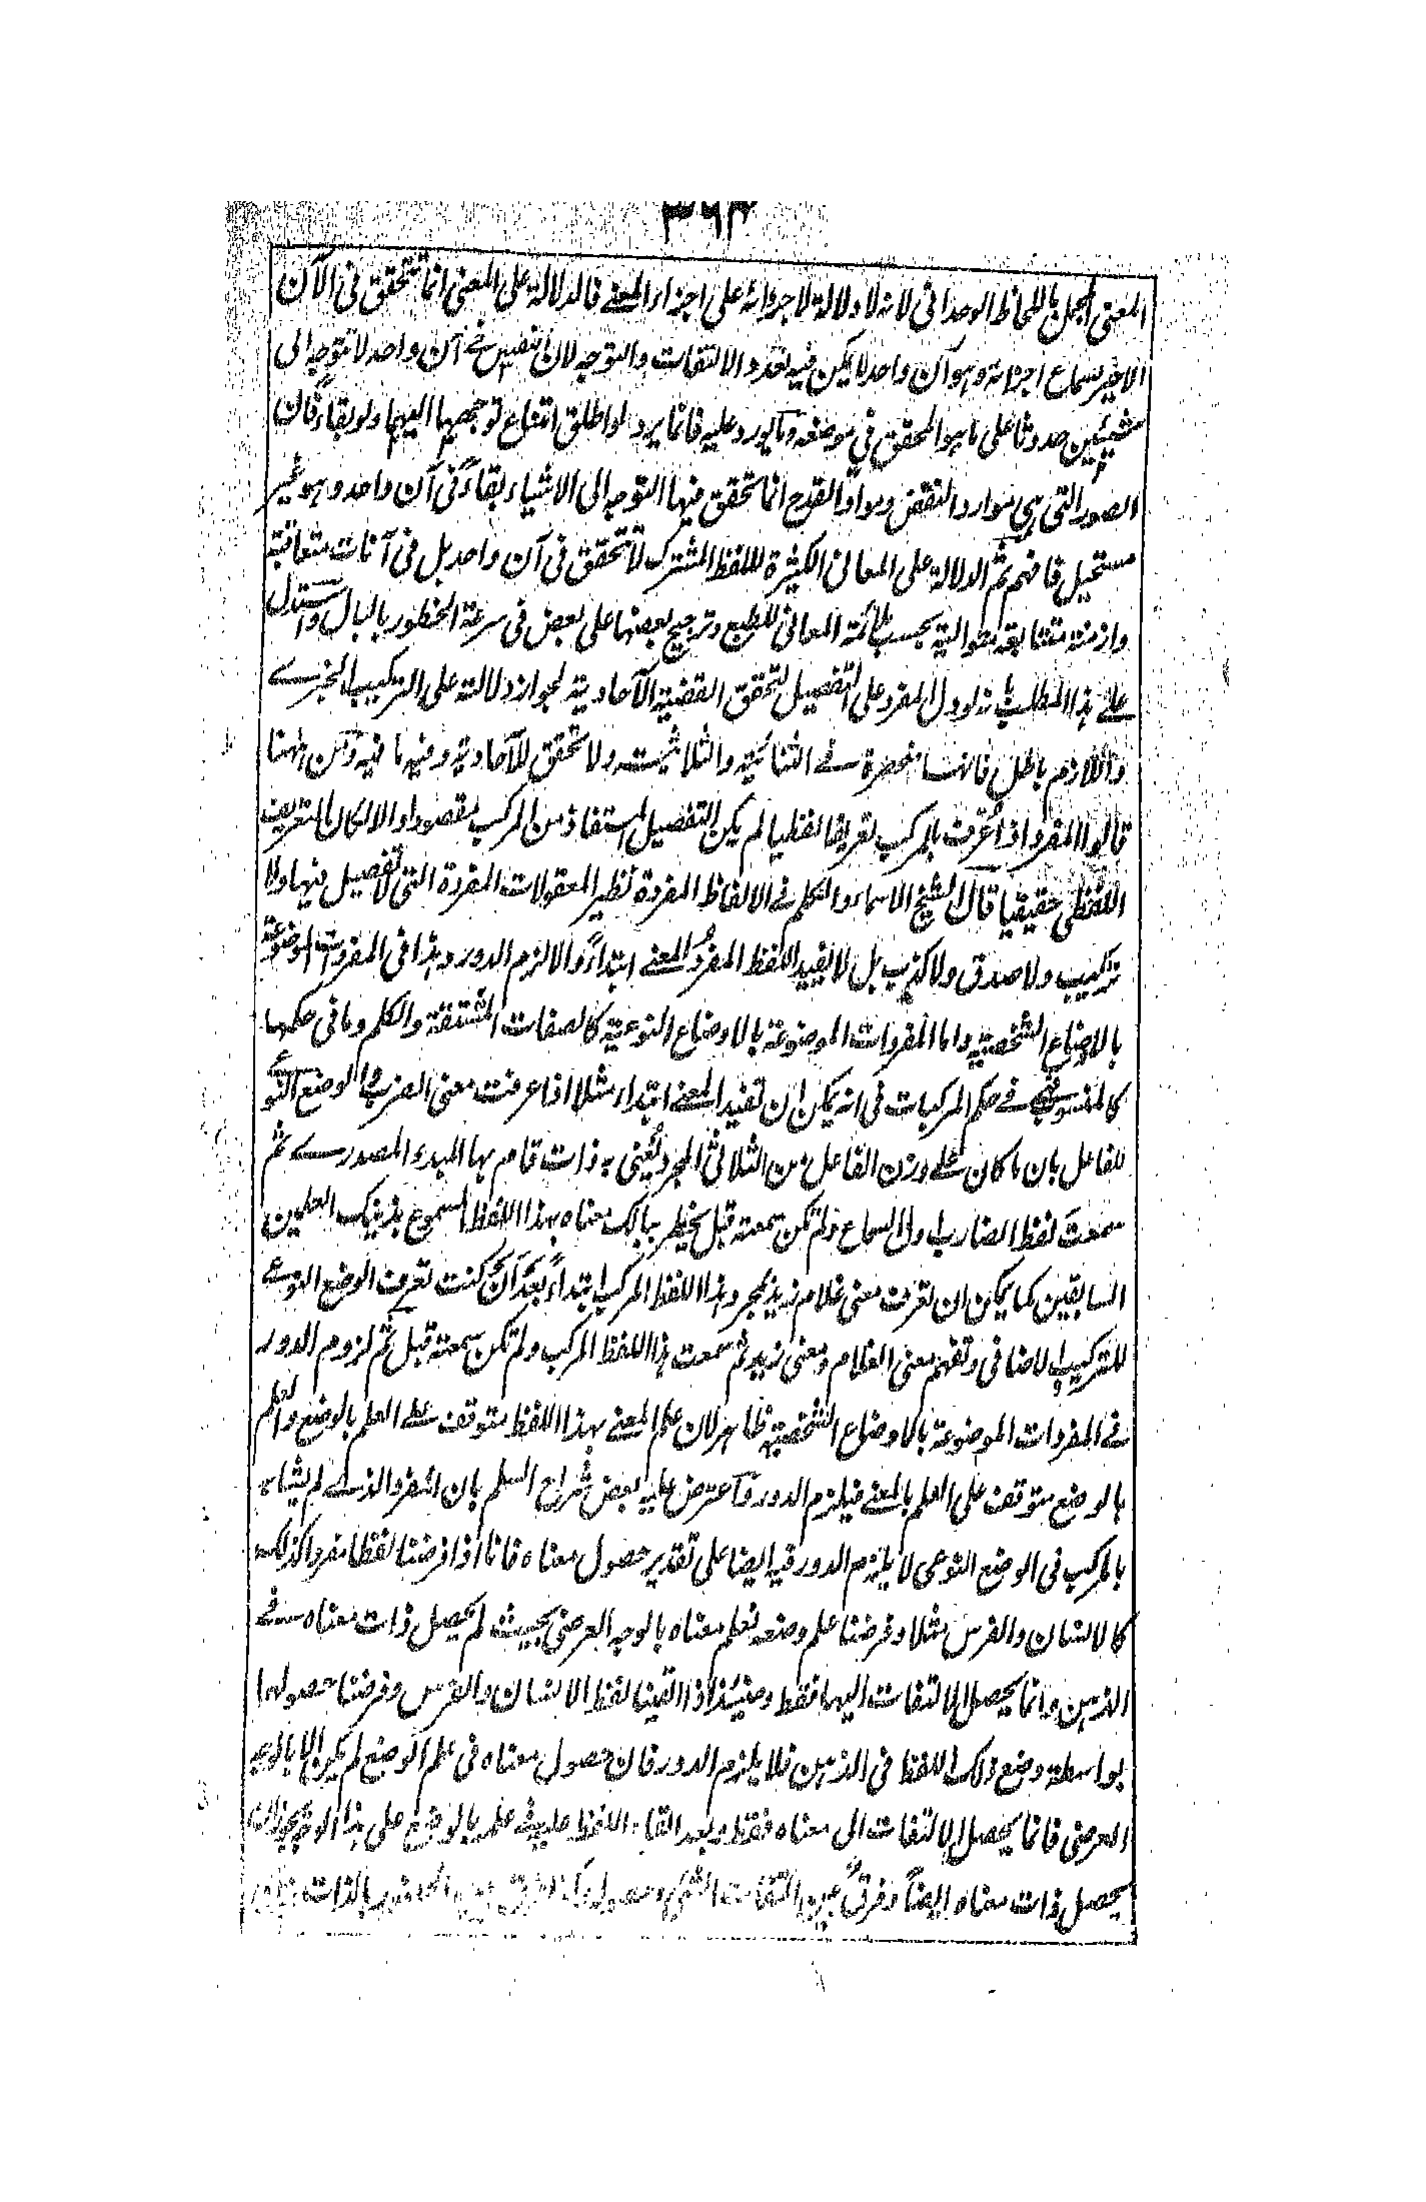 ٣٦٣
المعنى المجمل باللحاظ الوحدانى لانه لا دلالة لاجزائه على اجزاء المعنے فالدلالة على المعنى انما تتحقق فى الآن
الاخير بسماع اجزائه وهو آن واحد لا يمكن فيه تعدد الالتفات والتوجه لان النفس فے آن واحد لا تتوجه الى
شيئين حدوثا على ما هو المحقق في موضعه وما يورد عليه فانما يرد لو اطلق امتناع توجهها اليهما ولو بقاءً فان
الصور التى هي موارد النقض ومواد القدح انما تتحقق فيها التوجه الى الاشياء بقاءً فى آن واحد وهو غير
مستحيل فافهم ثم الدلالة على المعانى الكثيرة للفظ المشترك لا تتحقق فى آن واحد بل فى آنات متعاقبة
وازمنة متتابعة متوالية بحسب ملائمة المعانى للطبع وترجيح بعضها على بعض فى سرعة الخطور بالبال واستدل
على هذا المطلب بانه لو دل المفرد على التفصيل لتحقق القضية الآحادية لجواز دلالته على التركيب الخبرے
واللازم باطل فانها منحصرة فے الثنائية والثلاثية ولا تحقق للآحادية وفيه ما فيه ومن ههنا
قالوا المفرد اذا عُرّف بالمركب تعريفا لفظيا لم يكن التفصيل المستفاد من المركب مقصودا والا لكان التعريف
اللفظى حقيقيا قال الشيخ الاسماء والكلم فے الالفاظ المفردة نظير المعقولات المفردة التى لا تفصيل فيها ولا
تركيب ولا صدق ولا كذب بل لا يفيد اللفظ المفردُ المعنے ابتداءً والا لزم الدور وهذا فى المفردات الموضوعة
بالاوضاع الشخصية واما المفردات الموضوعة بالاوضاع النوعية كالصفات المشتقة والكلم وما فى حكمها
كالمنسوب فهى فے حكم المركبات فى انه يمكن ان تفيد المعنے ابتداء مثلا اذا عرفت معنى الضرب والوضع النوعے
للفاعل بان ما كان علے وزن الفاعل من الثلاثى المجرد يُعنى به ذات قام بها المبدء المصدرے ثم
سمعتَ لفظ الضارب اول السماع ولم تكن سمعته قبل يخطر ببالك معناه بهذا اللفظ المسموع بذينك العلمين
السابقين كما يمكن ان تعرف معنى غلام زيد بمجرد هذا اللفظ المركب ابتداءً بَعْدَ اَنْ كنت تعرف الوضع النوعے
للتركيب الاضافى وتفهم معنى الغلام ومعنى زيد ثم سمعت هذا اللفظ المركب ولم تكن سمعته قبل ثم لزوم الدور
فے المفردات الموضوعة بالاوضاع الشخصية ظاهر لان علم المعنے بهذا اللفظ متوقف علے العلم بالوضع والعلم
بالوضع متوقف على العلم بالمعنے فيلزم الدور واعترض عليه بعض شُراح السلم بان المفرد الذے لم يشابه
بالمركب فى الوضع النوعى لا يلزم الدور فيه ايضا على تقدير حصول معناه فانا اذا فرضنا لفظا مفردا كذلك
كالانسان والفرس مثلا وفرضنا علم وضعه نعلم معناه بالوجه العرضى بحيث لم يحصل ذات معناه فے
الذهن وانما يحصل الالتفات اليهما فقط وحينئذ اذا القينا لفظ الانسان والفرس وفرضنا حصولهما
بواسطة وضع ذلك اللفظ فى الذهن فلا يلزم الدور فان حصول معناه فى علم الوضع لم يكن الا بالوجه
العرضى فانما يحصل الالتفات الى معناه فقط وبعد القاء اللفظ عليه فے علم بالوضع على هذا الوجه يجوز ان
يحصل ذات معناه ايضاً وفرقٌ بين التفات الشئ وحصوله بالذات